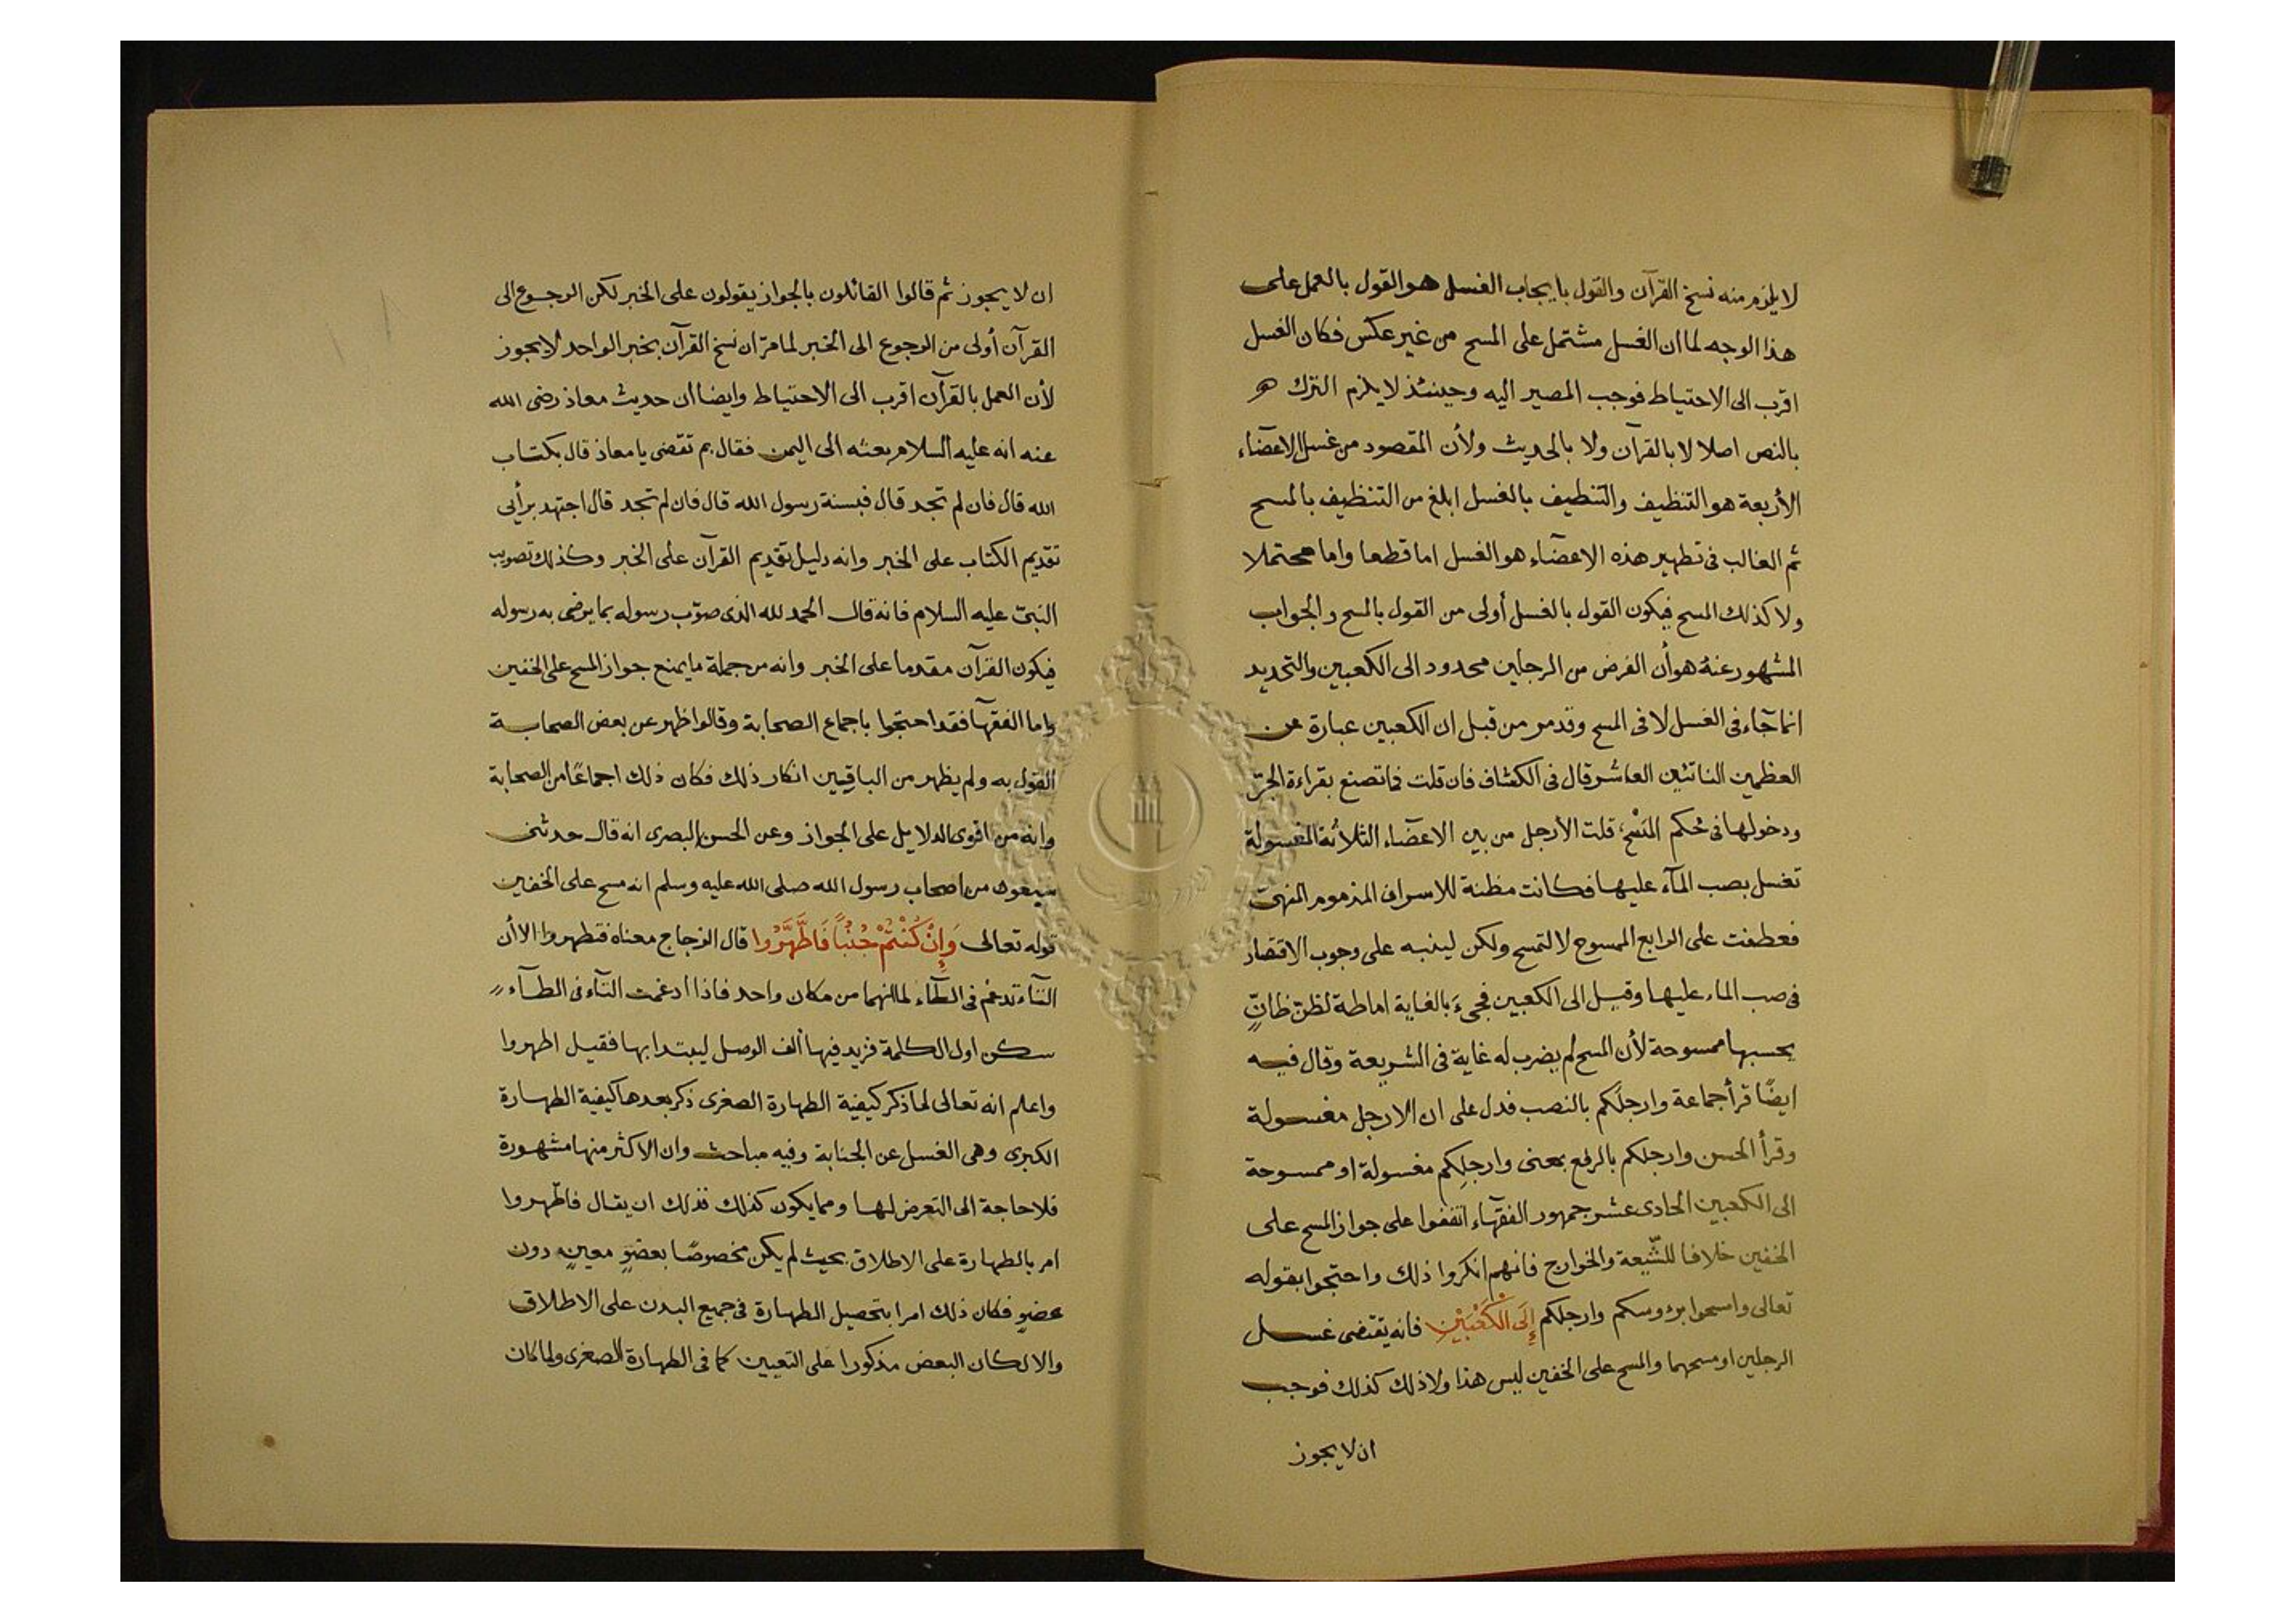 لا يلزم منه نسخ القرآن والقول بايجاب الغسل هو القول بالعمل على
هذا الوجه لما ان الغسل مشتمل على المسح من غير عكس فكان الغسل
اقرب الى الاحتياط فوجب المصير اليه وحينئذ لا يلزم الترك
بالنص اصلا لا بالقرآن ولا بالحديث ولأن المقصود من غسل الاعضآء
الأربعة هو التنظيف والتنظيف بالغسل ابلغ من التنظيف بالمسح
ثم الغالب فى تطهير هذه الاعضآء هو الغسل اما قطعا واما محتملا
ولا كذلك المسح فيكون القول بالغسل أولى من القول بالمسح والجواب
المشهور عنه هو أن الفرض من الرجلين محدود الى الكعبين والتحديد
انما جآء فى الغسل لا فى المسح وقد مر من قبل ان الكعبين عبارة من
العظمين الناتئين العاشر قال فى الكشاف فان قلت فما تصنع بقراءة الجرّ
ودخولها فى حُكم المَسْح؛ قلت الأرجل من بين الاعضآء الثلاثة المغسولة
تغسل بصب المآء عليها فكانت مظنة للاسراف المذموم المنهى
فعطفت على الرابع الممسوح لا لتمسح ولكن لينبه على وجوب الاقتصار
فى صب الماء عليها وقيل الى الكعبين فجىءَ بالغاية اماطة لظنّ ظانٍّ
يحسبها ممسوحة لأن المسح لم يضرب له غاية فى الشريعة وقال فيه
ايضًا قرأ جماعة وارجلَكم بالنصب فدل على ان الارجل مغسولة
وقرأ الحسن وارجلكم بالرفع بمعنى وارجلِكم مغسولة او ممسوحة
الى الكعبين الحادى عشر جمهور الفقهآء اتفقوا على جواز المسح على
الخفين خلافا للشّيعة والخوارج فانهم انكروا ذلك واحتجوا بقوله
تعالى وامسحوا برءوسكم وارجلكم إِلَى الْكَعْبَيْنِ فانه يقتضى غسل
الرجلين او مسحهما والمسح على الخفين ليس هذا ولا ذلك كذلك فوجب
ان لا يجوز
ان لا يجوز ثم قالوا القائلون بالجواز يقولون على الخبر لكن الرجوع الى
القرآن أولى من الرجوع الى الخبر لما مرّ ان نسخ القرآن بخبر الواحد لا يجوز
لأن العمل بالقرآن اقرب الى الاحتياط وايضا ان حديث معاذ رضى الله
عنه انه عليه السلام بعثه الى اليمن فقال بم تقضى يا معاذ قال بكتاب
الله قال فان لم تجد قال فبسنة رسول الله قال فان لم تجد قال اجتهد برأيى
تقديم الكتاب على الخبر وانه دليل تقديم القرآن على الخبر وكذلك تصويب
النبىّ عليه السلام فانه قال الحمد لله الذى صوّب رسوله بما يرضى به رسوله
فيكون القرآن مقدما على الخبر وانه من جملة ما يمنع جواز المسح على الخفين
واما الفقهآ فقد احتجوا باجماع الصحابة وقالوا ظهر عن بعض الصحابة
القول به ولم يظهر من الباقيين انكار ذلك فكان ذلك اجماعًا من الصحابة
وانه من اقوى الدلايل على الجواز وعن الحسن البصرى انه قال حدثنى
سبعون من اصحاب رسول الله صلى الله عليه وسلم انه مسح على الخفين
قوله تعالى وَإِنْ كُنْتُمْ جُنُبًا فَاطَّهَّرُوا قال الزجاج معناه فتطهروا الا أن
التآء تدغم فى الطآء لما انهما من مكان واحد فاذا ادغمت التآء فى الطآء
سكن اول الكلمة فزيد فيها ألف الوصل ليبتدا بها فقيل اطهروا
واعلم انه تعالى لما ذكر كيفية الطهارة الصغرى ذكر بعدها كيفية الطهارة
الكبرى وهى الغسل عن الجنابة وفيه مباحث وان الاكثر منها مشهورة
فلا حاجة الى التعرض لها ومما يكون كذلك فذلك ان يقال فاطّهروا
امر بالطهارة على الاطلاق بحيث لم يكن مخصوصًا بعضوٍ معينٍ دون
عضوٍ فكان ذلك امرا بتحصيل الطهارة فى جميع البدن على الاطلاق
والا لكان البعض مذكورا على التعيين كما فى الطهارة الصغرى ولما كان